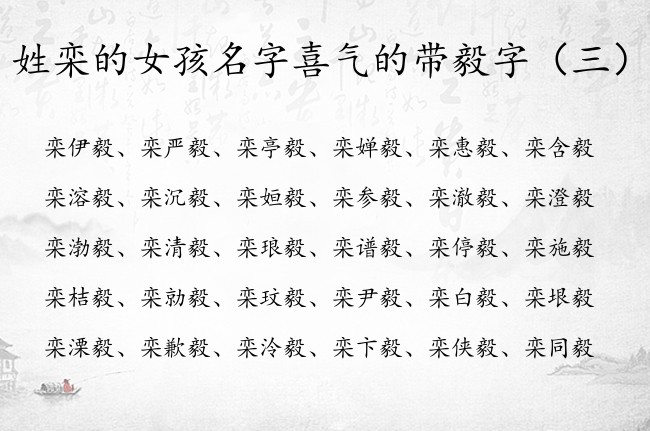 姓栾的女孩名字喜气的带毅字（三）
栾伊毅、栾严毅、栾亭毅、栾婵毅、栾惠毅、栾含毅
栾溶毅、栾沉毅、栾姮毅、栾参毅、栾澈毅、栾澄毅
栾渤毅、栾清毅、栾琅毅、栾谱毅、栾停毅、栾施毅
栾桔毅、栾勍毅、栾玟毅、栾尹毅、栾白毅、栾垠毅
栾溧毅、栾歉毅、栾泠毅、栾卞毅、栾侠毅、栾同毅